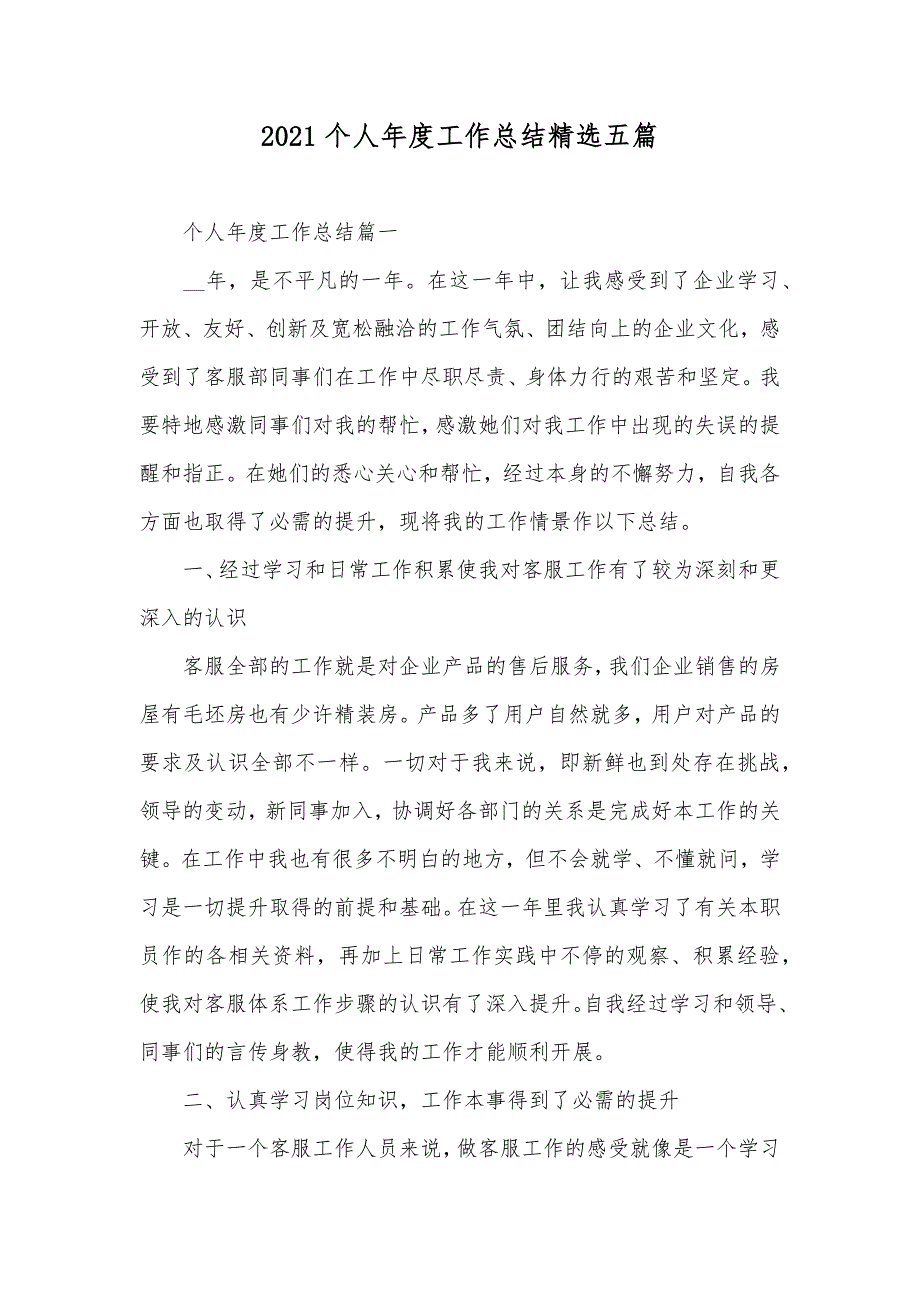 2021个人年度工作总结精选五篇
个人年度工作总结篇一
__年，是不平凡的一年。在这一年中，让我感受到了企业学习、
开放、友好、创新及宽松融洽的工作气氛、团结向上的企业文化，感
受到了客服部同事们在工作中尽职尽责、身体力行的艰苦和坚定。我
要特地感激同事们对我的帮忙，感激她们对我工作中出现的失误的提
醒和指正。在她们的悉心关心和帮忙，经过本身的不懈努力，自我各
方面也取得了必需的提升，现将我的工作情景作以下总结。
一、经过学习和日常工作积累使我对客服工作有了较为深刻和更
深入的认识
客服全部的工作就是对企业产品的售后服务，我们企业销售的房
屋有毛坯房也有少许精装房。产品多了用户自然就多，用户对产品的
要求及认识全部不一样。一切对于我来说，即新鲜也到处存在挑战，
领导的变动，新同事加入，协调好各部门的关系是完成好本工作的关
键。在工作中我也有很多不明白的地方，但不会就学、不懂就问，学
习是一切提升取得的前提和基础。在这一年里我认真学习了有关本职
员作的各相关资料，再加上日常工作实践中不停的观察、积累经验，
使我对客服体系工作步骤的认识有了深入提升。自我经过学习和领导、
同事们的言传身教，使得我的工作才能顺利开展。
二、认真学习岗位知识，工作本事得到了必需的提升
对于一个客服工作人员来说，做客服工作的感受就像是一个学习